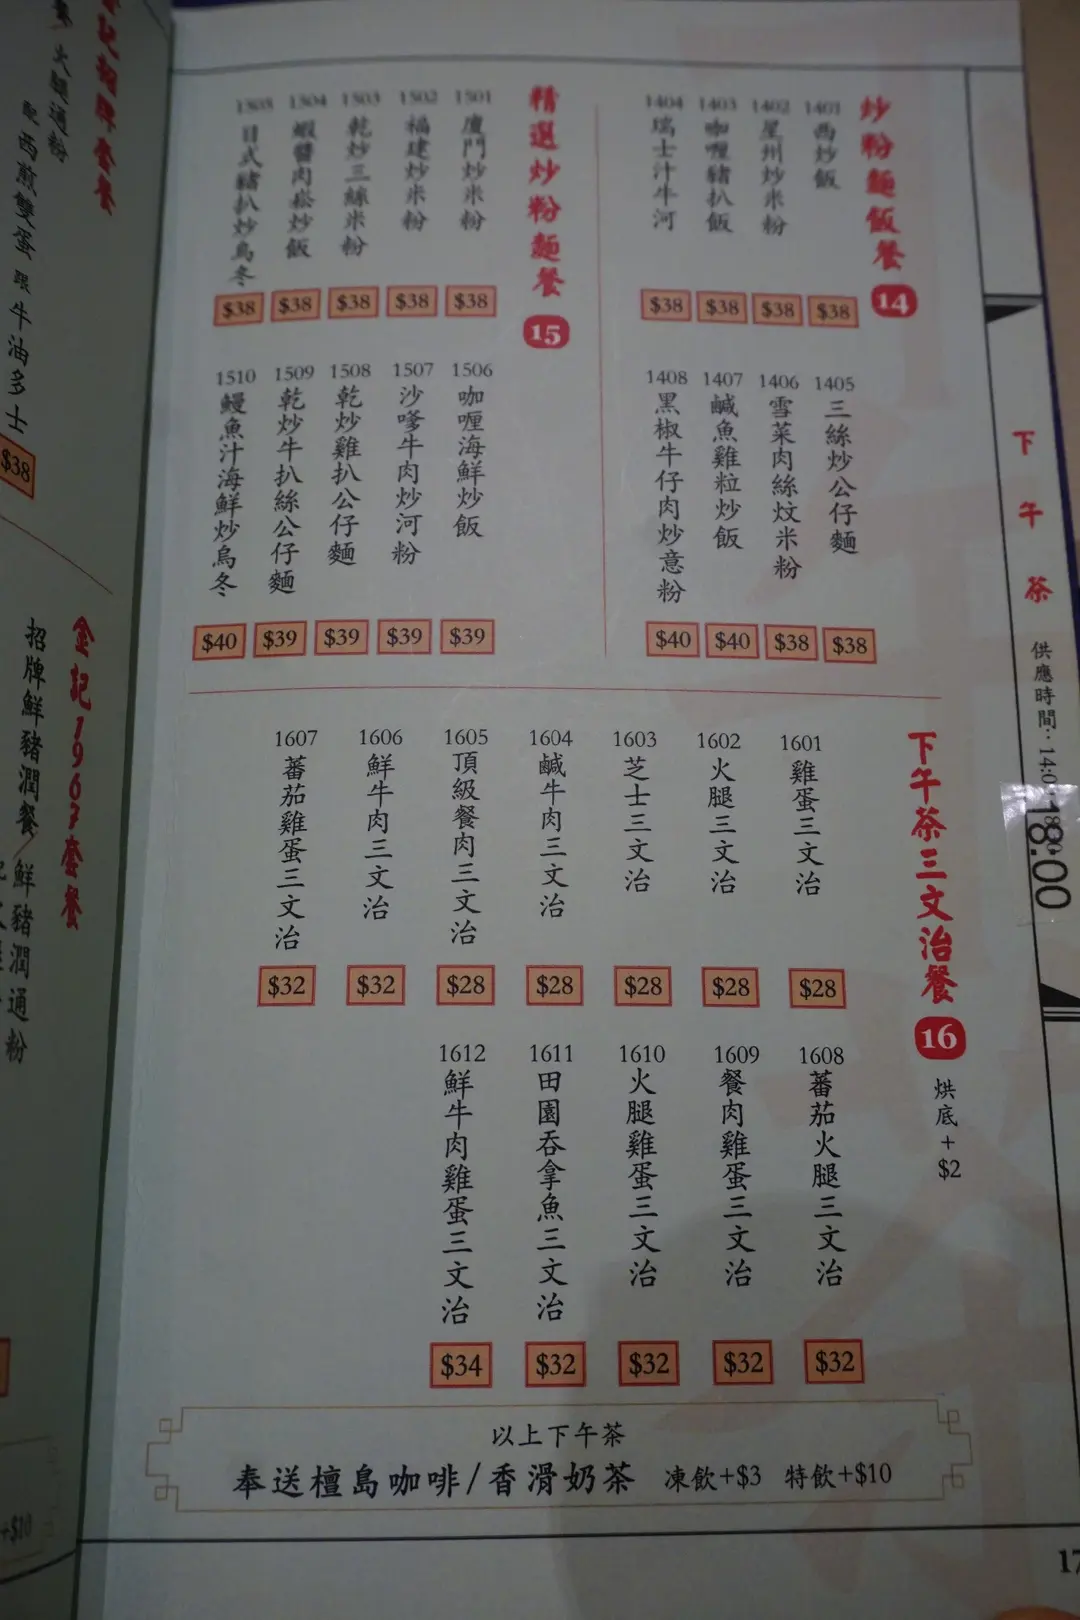 下午茶
供應時間：14:0
18.00
炒粉麵飯餐
14
1401
西炒飯
$38
1402
星州炒米粉
$38
1403
咖喱豬扒飯
$38
1404
瑞士汁牛河
$38
1405
三絲炒公仔麵
$38
1406
雪菜肉絲炆米粉
$38
1407
鹹魚雞粒炒飯
$40
1408
黑椒牛仔肉炒意粉
$40
精選炒粉麵餐
15
1501
廈門炒米粉
$38
1502
福建炒米粉
$38
1503
乾炒三絲米粉
$38
1504
蝦醬肉崧炒飯
$38
1505
日式豬扒炒烏冬
$38
1506
咖喱海鮮炒飯
$39
1507
沙嗲牛肉炒河粉
$39
1508
乾炒雞扒公仔麵
$39
1509
乾炒牛扒絲公仔麵
$39
1510
鰻魚汁海鮮炒烏冬
$40
下午茶三文治餐
16
烘底+$2
1601
雞蛋三文治
$28
1602
火腿三文治
$28
1603
芝士三文治
$28
1604
鹹牛肉三文治
$28
1605
頂級餐肉三文治
$28
1606
鮮牛肉三文治
$32
1607
蕃茄雞蛋三文治
$32
1608
蕃茄火腿三文治
$32
1609
餐肉雞蛋三文治
$32
1610
火腿雞蛋三文治
$32
1611
田園吞拿魚三文治
$32
1612
鮮牛肉雞蛋三文治
$34
以上下午茶
奉送檀島咖啡/香滑奶茶 凍飲+$3 特飲+$10
17
記招牌套餐
火腿通粉
配西煎雙蛋跟牛油多士
$38
金記1967套餐
招牌鮮豬潤餐/鮮豬潤通粉
+$10